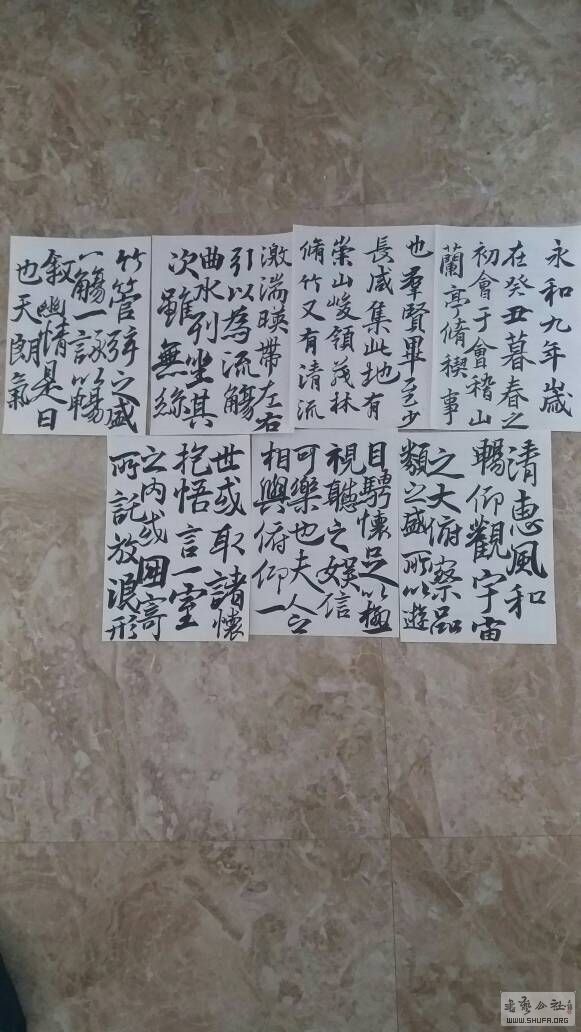 永和九年歲
在癸丑暮春之
初會于會稽山
蘭亭脩禊事
也羣賢畢至少
長咸集此地有
崇山峻領茂林
脩竹又有清流
激湍暎帶左右
引以為流觴
曲水列坐其
次雖無絲
竹管弦之盛
一觴一詠以暢
敘幽情是日
也天朗氣
清惠風和
暢仰觀宇宙
之大俯察品
類之盛所以遊
目騁懷足以極
視聽之娛信
可樂也夫人之
相與俯仰一
世或取諸懷
抱悟言一室
之内或因寄
所託放浪形
書藝公社
WWW.SHUFA.ORG